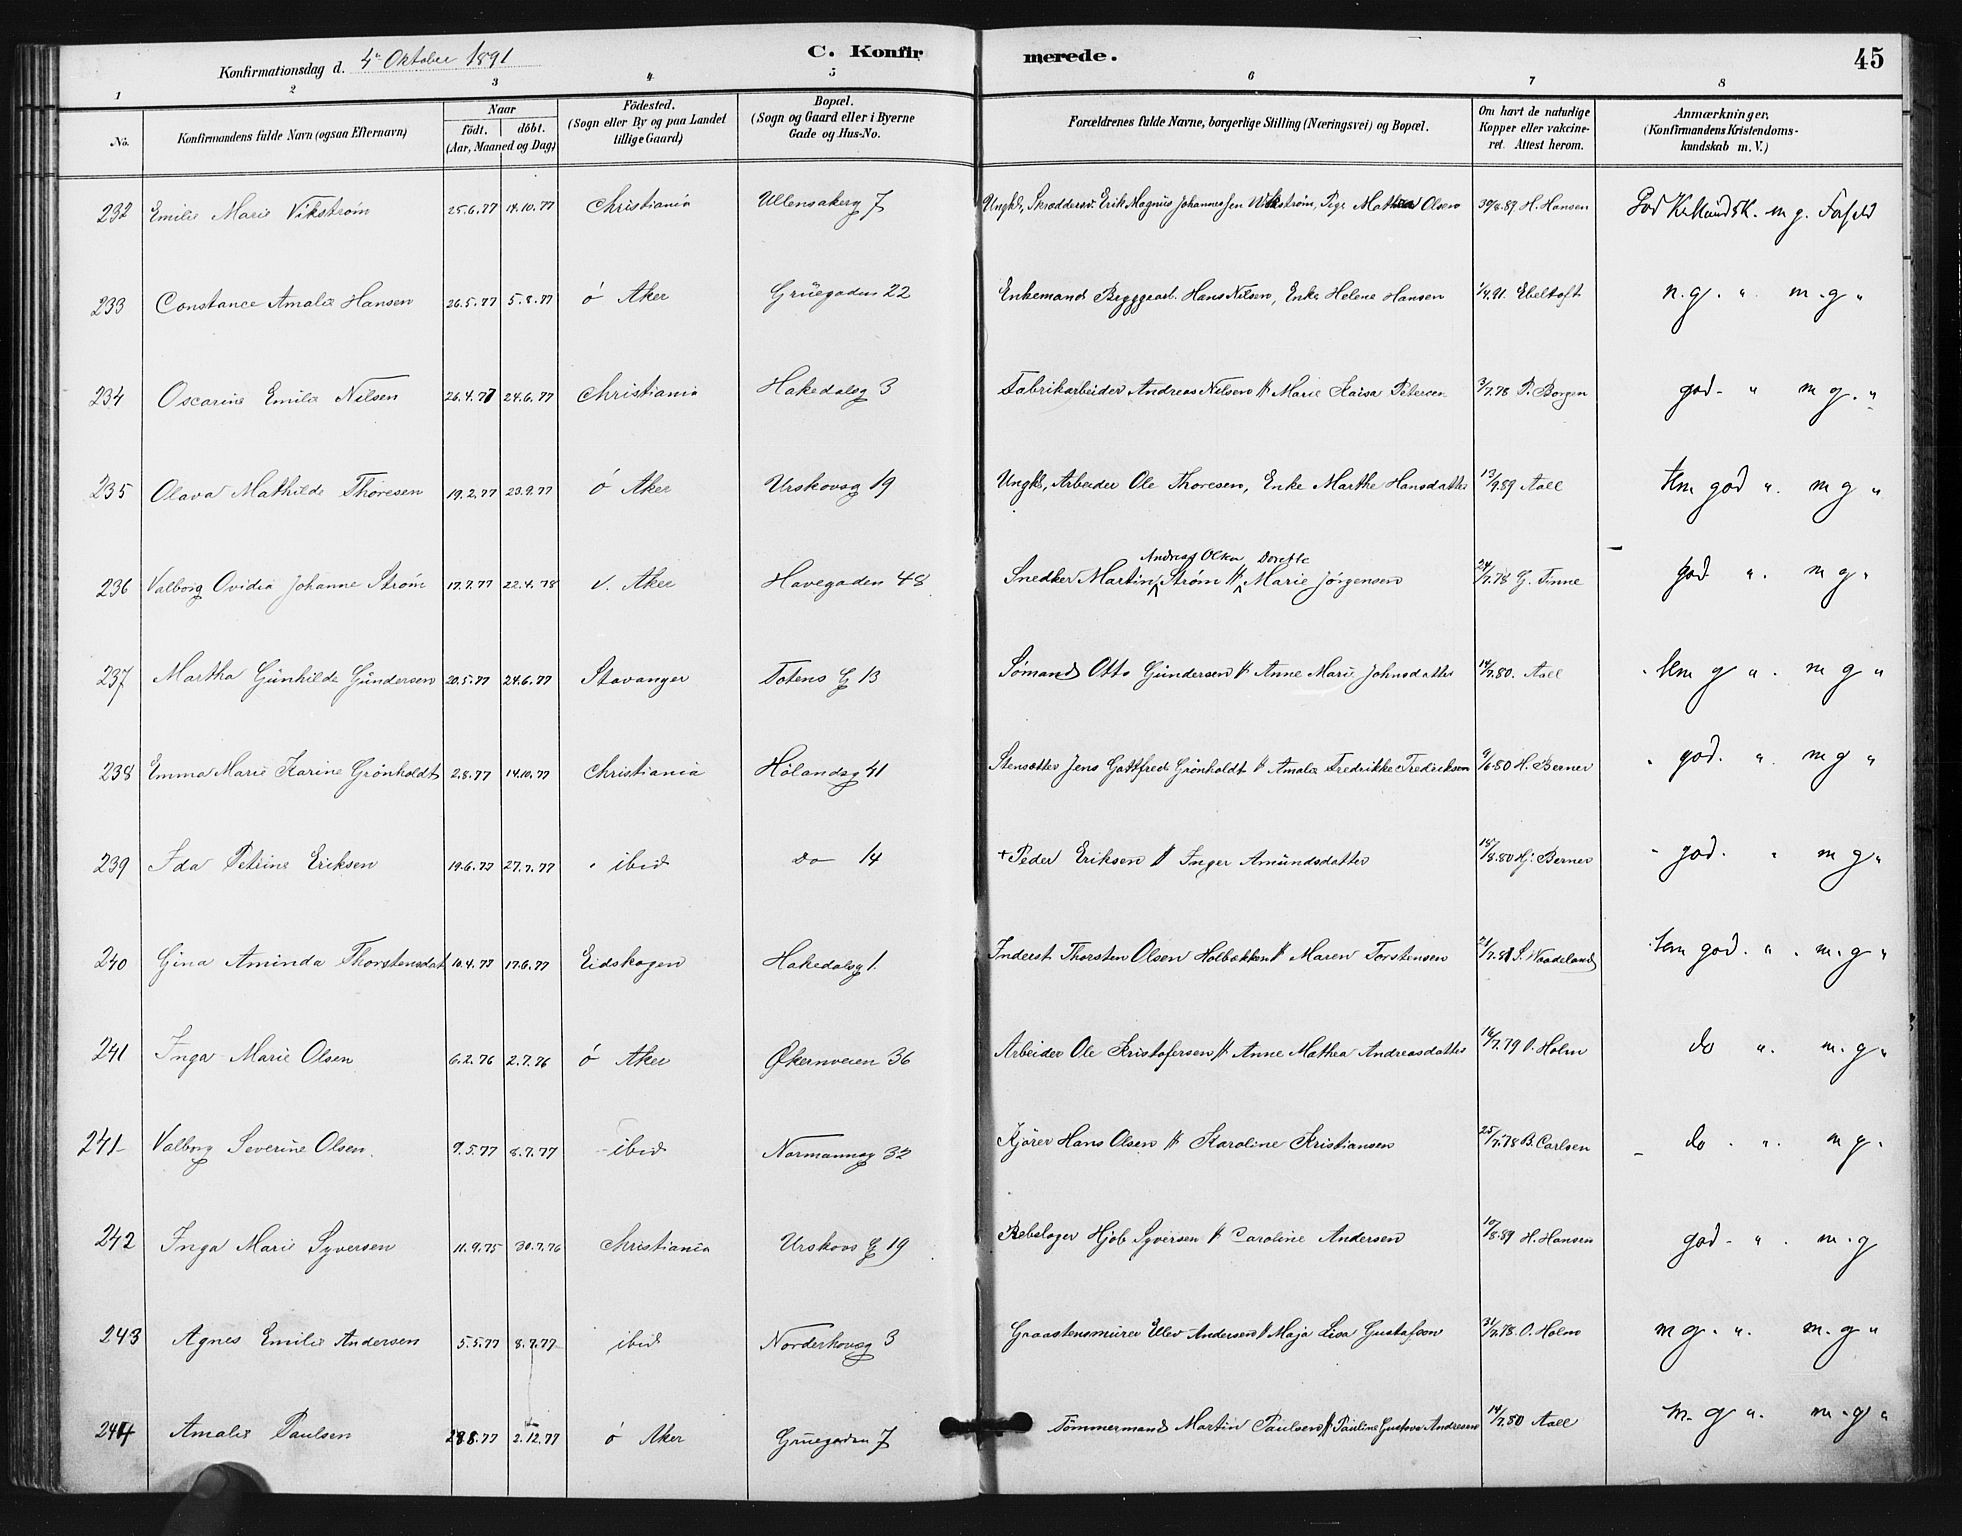 Konfirmationsdag d. 4de Oktober 1891 C. Konfirmerede. 45
1 2 3 4 5 6 7 8
No. Konfirmandens fulde Navn (ogsaa Efternavn) Naar födt. döbt. (Aar, Maaned og Dag) Födested. (Sogn eller By og paa Landet tillige Gaard) Bopæl. (Sogn og Gaard eller i Byerne Gade og Hus-No. Forældrenes fulde Navne, borgerlige Stilling (Næringsvei) og Bopæl. Om havt de naturlige Kopper eller vakcineret. Attest herom. Anmærkninger. (Konfirmandens Kristendomskundskab m. V.)
232 Emilie Marie Vikstrøm 25.6.77 14.10.77 Christiania Ullensakerg 7 Ungk, Skræddersv. Erik Magnus Johannesen Wikstrøm, Pige Mathea Olsen 30/8.89 H. Hansen God Kr. Kundsk. m g. Forhold
233 Constance Amalie Hansen 26.5.77 5.8.77 ó Aker Grüegaden 22 Enkemand Byggearb. Hans Nilsen, Enke Helene Hansen 1/4.91. Ebeltoft n.g. " m.g "
234 Oscarine Emilie Nilsen 26.4.77 24.6.77 Christiania Hakedalsg 3 Fabrikarbeider Andreas Nilsen # Marie Kaisa Petersen 3/7.78 P. Borgen god - " m g. "
235 Olava Mathilde Thoresen 19.2.77 23.9.77 ó Aker Urskovsg 19 Ungk, Arbeider Ole Thoresen, Enke Marthe Hansdatter 13/9.89 Aall tem god ". m g "
236 Valborg Ovidia Johanne Strøm 17.7.77 22.4.78 v. Aker Havegaden 48 Snedker Martin Andreas Olsen Strøm # Dorette Marie Jörgensen 24/7.78 G. Finne god ". m g "
237 Martha Günhilde Gündersen 20.5.77 24.6.77 Stavanger Totens G 13 Sømand Otto Gündersen # Anne Marie Johnsdatter 14/7.80. Aall tem g ". m g "
238 Emma Marie Karine Grönholdt 2.8.77 14.10.77 Christiania Hölandsg 41 Stensætter Jens Gottfred Grönholdt # Amalie Fredrikke Fredriksen 9/6.80 H. Berner god. ". m g "
239 Ida Petrine Eriksen 19.6.77 27.7.77 ibid do 14 + Peder Eriksen # Inger Amündsdatter 18/8.80 Hj. Berner god. " m g "
240 Gina Aminda Thorstensdat 10.4.77 17.6.77 Eidskogen Hakedalsg 1. Inderst Thorsten Olsen Holbækken # Maren Torstensen 21/7.81 S. Waadeland tem god. ". m.g "
241 Inga Marie Olsen 6.2.76 2.7.76 ó Aker Økernveien 36 Arbeider Ole Kristofersen # Anne Mathea Andreasdatter 16/7.79 O. Holm do ". m.g "
241 Valborg Severine Olsen. 9.5.77 8.7.77 ibid Normannsg 32 Kjører Hans Olsen # Karoline Kristiansen 25/7.78 B. Carlsen do ". m g.
242 Inga Marie Syversen 11.9.75 30.7.76 Christiania Urskovs G 19 Rebslager Hjöb Syversen # Caroline Andersen 10/8.89 H. Hansen god - ". m.g
243 Agnes Emilie Andersen 5.5.77 8.7.77 ibid Norderhovsg 3 Graastensmurer Ellev Andersen # Maja Lisa Gustafson 31/7.78. O. Holm m g. ". m. g "
244 Amalie Paulsen 28.8.77 2.12.77 ó Aker Grüegaden 7 Tømmermand Martin Paulsen # Pauline Gustava Andresen 14/7.80 Aall m. g ". m.g "